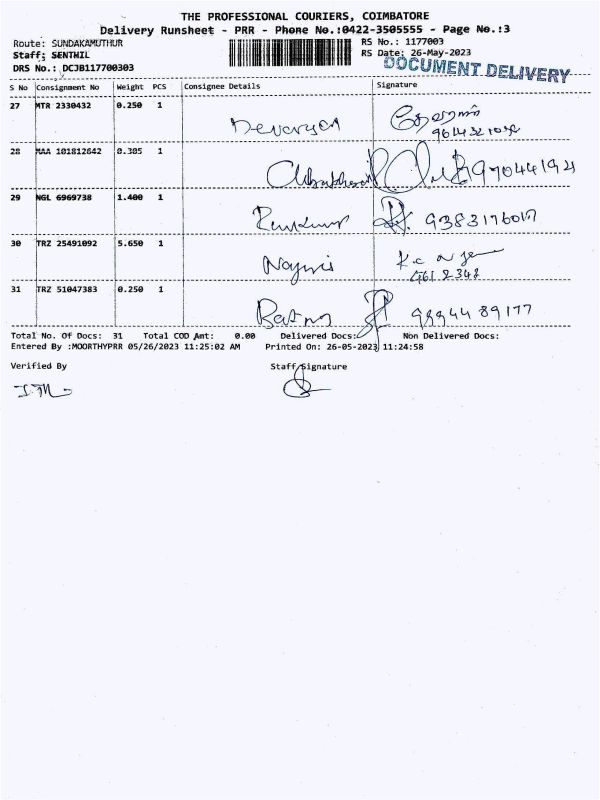 THE PROFESSIONAL COURIERS, COIMBATORE
Delivery Runsheet - PRR - Phone No.:0422-3505555 - Page No.:3
Route: SUNDAKAMUTHUR RS No.: 1177003
Staff: SENTHIL RS Date: 26-May-2023
DRS No.: DCJB117700303 DOCUMENT DELIVERY
S No Consignment No Weight PCS Consignee Details Signature
27 MTR 2330432 0.250 1
28 MAA 101812642 0.305 1
29 NGL 6969738 1.400 1
Ramkumar 9383176017
30 TRZ 25491092 5.650 1
31 TRZ 51047383 0.250 1
99944 89177
Total No. Of Docs: 31 Total COD Amt: 0.00 Delivered Docs: Non Delivered Docs:
Entered By :MOORTHYPRR 05/26/2023 11:25:02 AM Printed On: 26-05-2023 11:24:58
Verified By Staff Signature